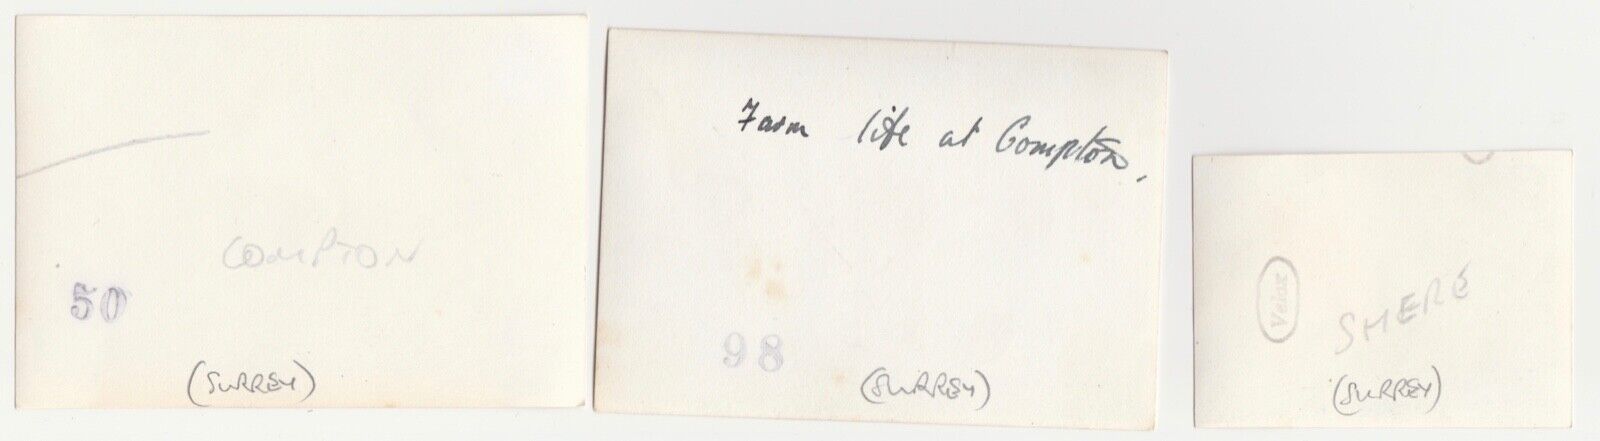 COMPTON
50
(SURREY)
Farm life at Compton,
98
(SURREY)
Velox
SHERE
(SURREY)